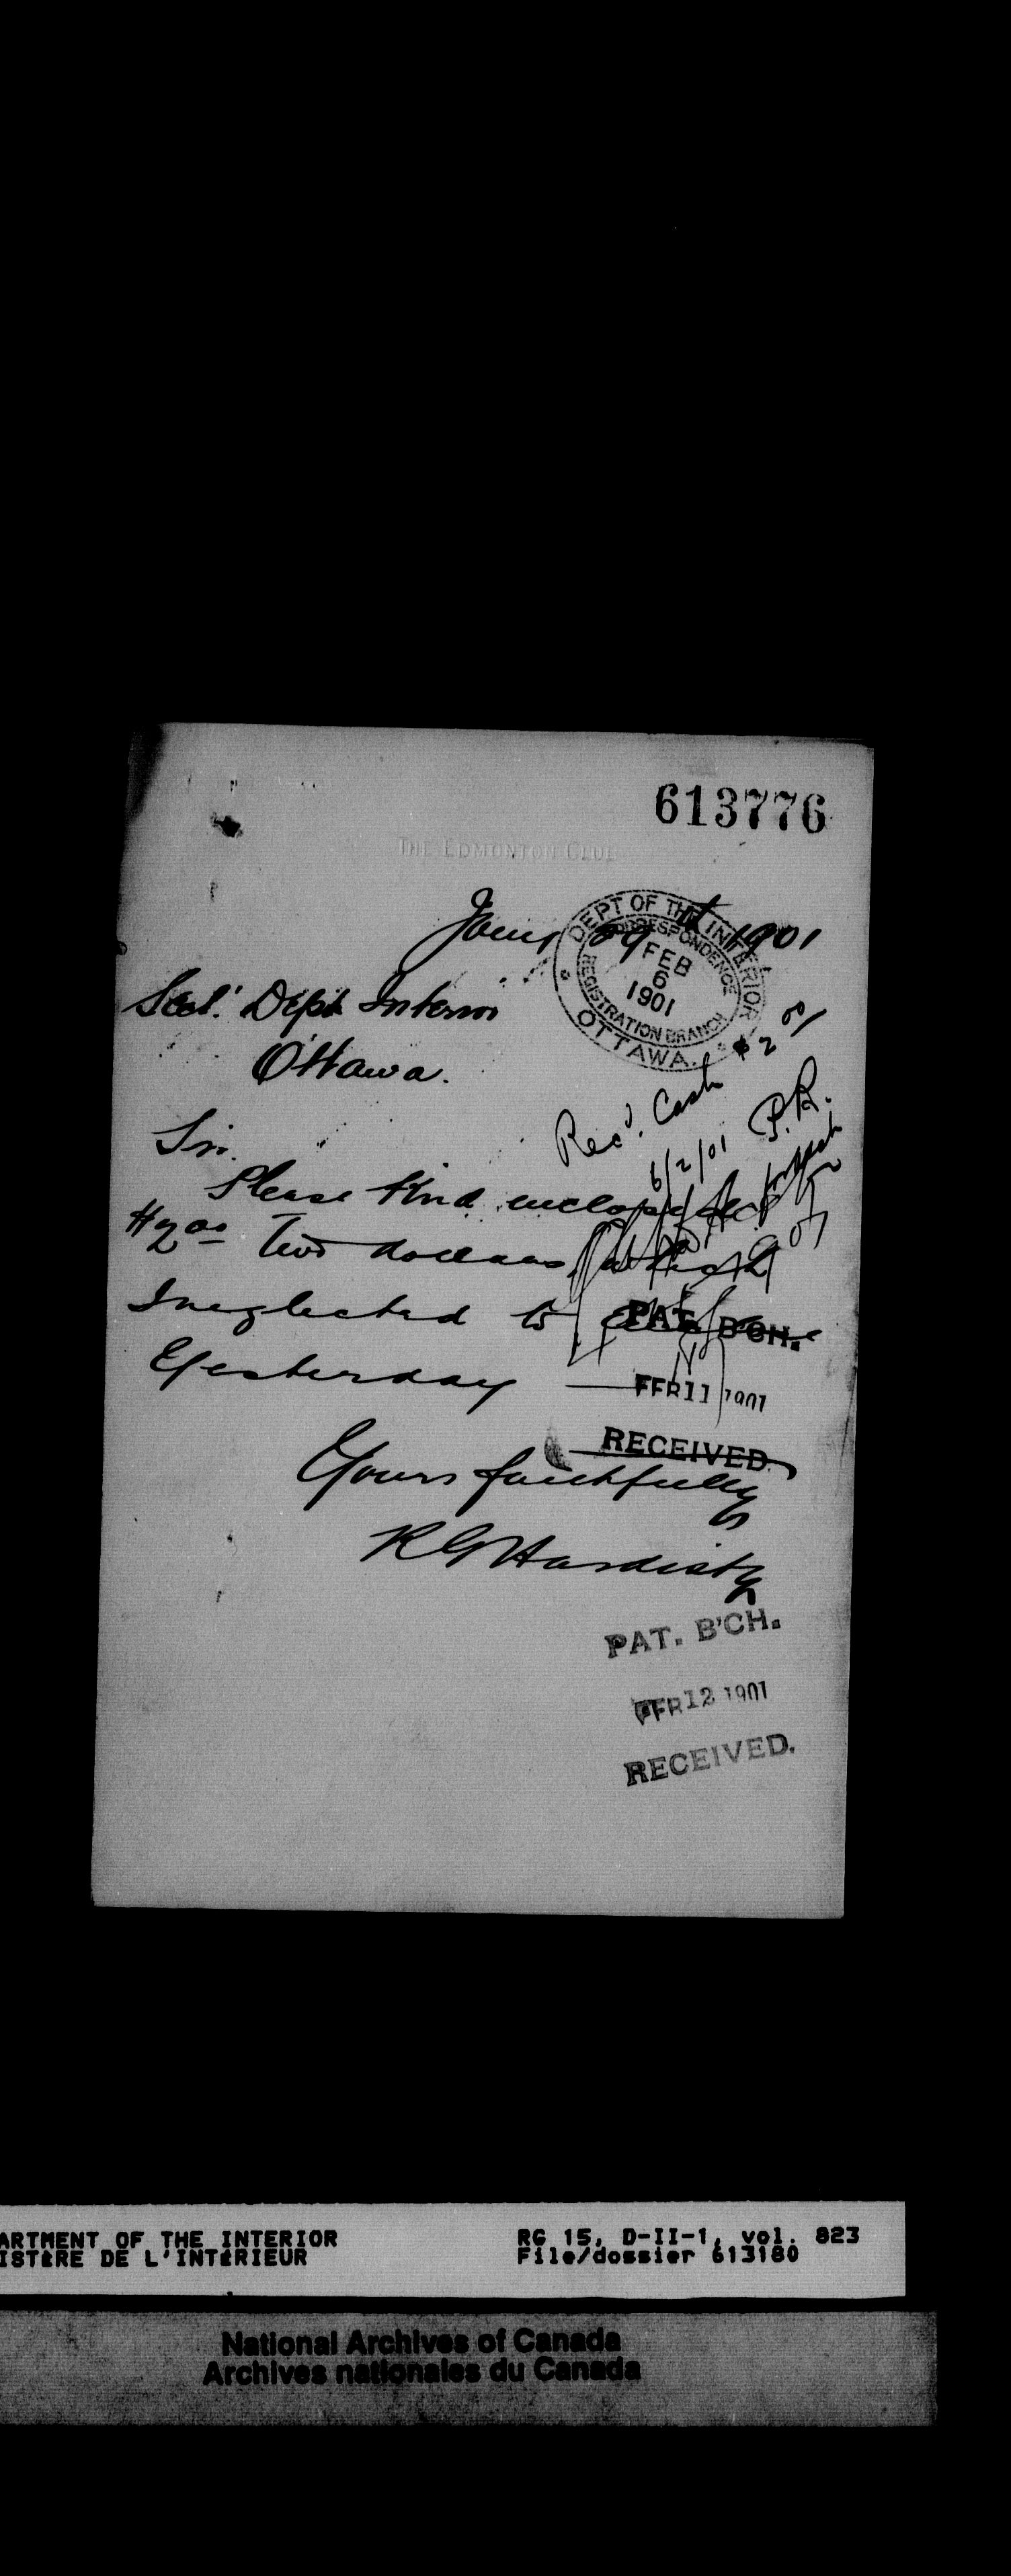 613776
THE EDMONTON CLUB
Jany 29th 1901
DEPT OF THE INTERIOR
CORRESPONDENCE
FEB
6
1901
REGISTRATION BRANCH
OTTAWA.
Secl. Dept Interior
Ottawa.
Recd. Cash $2 00/
6/2/01 P.R.
Sir.
Please find enclosed
$2 00 Two dollars
I neglected to
Yesterday
PAT. B'CH.
FEB 11 1901
RECEIVED.
Yours faithfully
R G Hardisty
PAT. B'CH.
FEB 12 1901
RECEIVED.
ARTMENT OF THE INTERIOR
ISTÈRE DE L'INTÉRIEUR
RG 15, D-II-1, vol. 823
File/dossier 613180
National Archives of Canada
Archives nationales du Canada